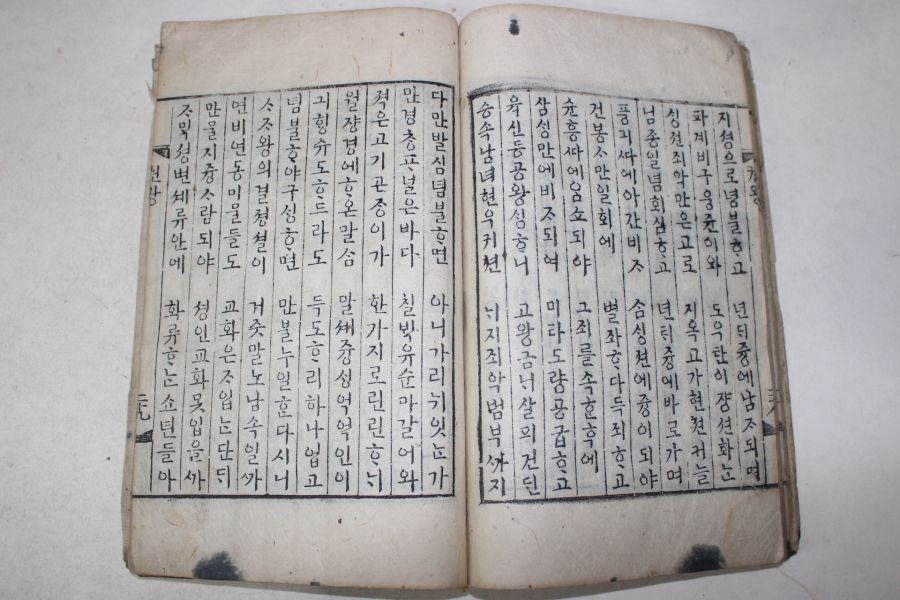 지셩으로념불ᄒᆞ고 년ᄃᆡ즁에남ᄌᆞ되며
파계비구웅쥰이와 도우탄이쟝션화ᄂᆞᆫ
십젼죄악만은고로 지옥고가현젼커늘
님죵일념회심ᄒᆞ고 년ᄃᆡ즁에바로가며
풍긔ᄯᅡ에아간비ᄌᆞ 삼ᄉᆡᆼ젼에즁이되야
건봉ᄉᆞ만일회에 별좌ᄒᆞ다득죄ᄒᆞ고
슌흥ᄯᅡ에암쇼되야 그죄를속ᄒᆞᆫ후에
삼ᄉᆡᆼ만에비ᄌᆞ되여 미타도량공급ᄒᆞ고
육신등공왕ᄉᆡᆼᄒᆞ니 고왕금ᄂᆡ살펴건ᄃᆡᆫ
승속남녀현우귀쳔 ᄂᆡ지죄악범부ᄭᅡ지
다만발심념불ᄒᆞ면 아니가리뉘잇ᄂᆞᆫ가
만경창파널은바다 칠박유순마갈어와
젹은고기곤죵이가 한가지로린린ᄒᆞᄂᆡ
월쟝경에ᄒᆞ온말ᄉᆞᆷ 말셰즁ᄉᆡᆼ억억인이
긔ᄒᆡᆼ슈도ᄒᆞ드라도 득도ᄒᆞ리하나업고
념불ᄒᆞ야구ᄉᆡᆼᄒᆞ면 만불누일ᄒᆞᆫ다시니
ᄉᆞᄌᆞ왕의결졍셜이 거즛말노남속일ᄭᅡ
연비연동미물들도 교화은ᄌᆞ입ᄂᆞᆫ단ᄃᆡ
만물지즁ᄉᆞ람되야 셩인교화못입을ᄭᅡ
ᄌᆞ믹셩변셰류안에 화류ᄒᆞᄂᆞᆫ쇼년들아
권왕